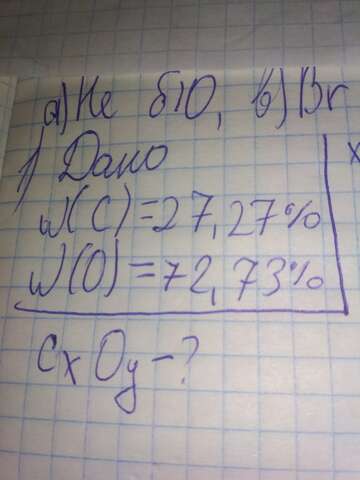 а) Не б) О, в) Br
1) Дано
W(C)=27,27%
W(O)=72,73%
CxOy-?